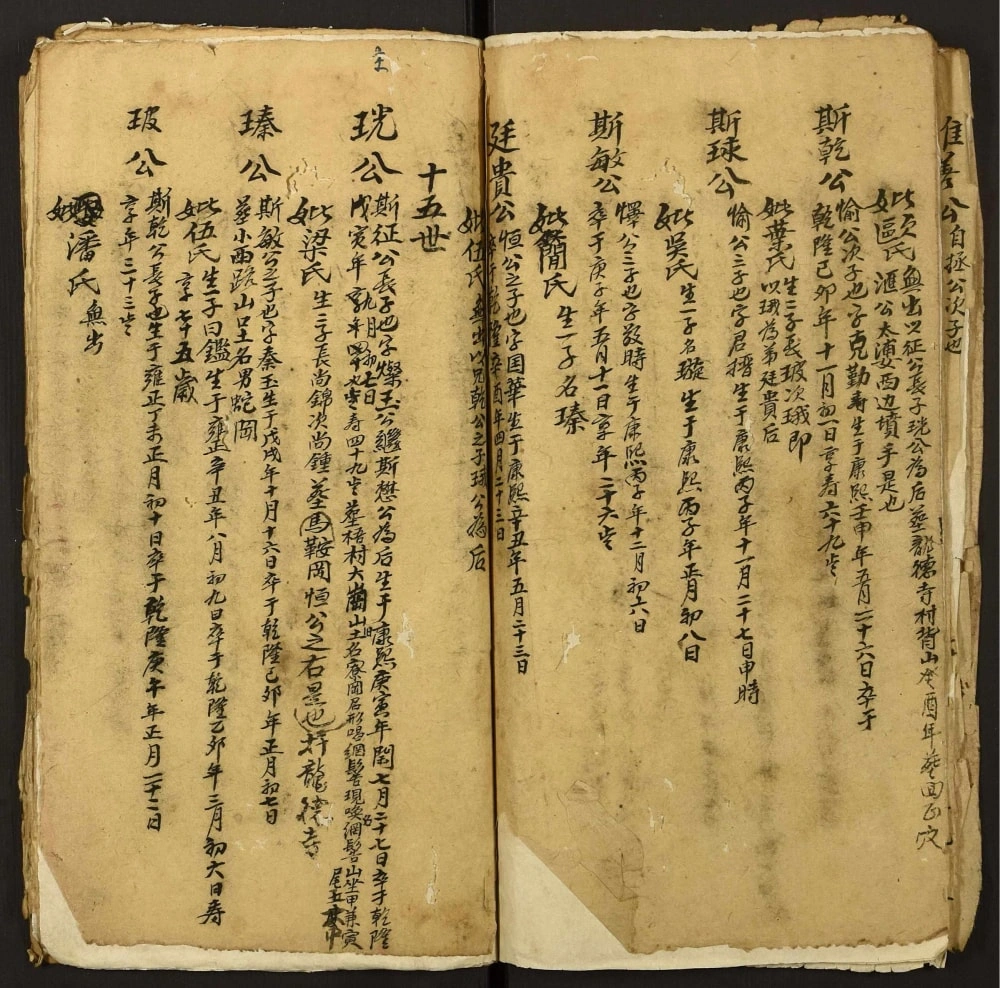 惟善公自拯公次子也
妣區氏無出以征公長子珖公為后葬龍德寺村背山癸酉年葬回正穴
滙公太浦安西边墳手是也
斯乾公愉公次子也字克勤壽生于康熙壬申年五月二十六日卒于
乾隆己卯年十一月初一日享寿六十九岁
妣葉氏生二子長玻次珴即
以珴為弟廷貴后
斯球公愉公三子也字君摺生于康熙丙子年十一月二十七日申時
妣吳氏生一子名璇生于康熙丙子年正月初八日
斯敏公懌公三子也字敬時生于康熙丙子年十二月初六日
卒于庚子年五月十一日享年二十六岁
妣簡氏生一子名瑧
廷貴公恒公之子也字国華生于康熙辛丑年五月二十三日
卒于乾隆辛酉年四月二十三日
妣伍氏無出以兄乾公之子珴公為后
十五世
珖公斯征公長子也字燦玉公繼斯懋公為后生于康熙庚寅年閏七月二十七日卒于乾隆
戊寅年九月初七日寿四十九岁葬梧村大崗山土名寮岡
妣梁氏生二子長尚錦次尚鍾葬馬鞍岡恒公之右是也拧龍德寺
瑧公斯敏公之子也字秦玉生于戊戌年十月十六日卒于乾隆己卯年正月初七日
葬小西路山土名男蛇岡
妣伍氏生一子曰鑑生于雍正辛丑年八月初九日卒于乾隆乙卯年三月初六日寿
享七十五歲
玻公斯乾公長子也生于雍正丁未正月初十日卒于乾隆庚午年正月二十二日
享年二十三岁
妣潘氏無出